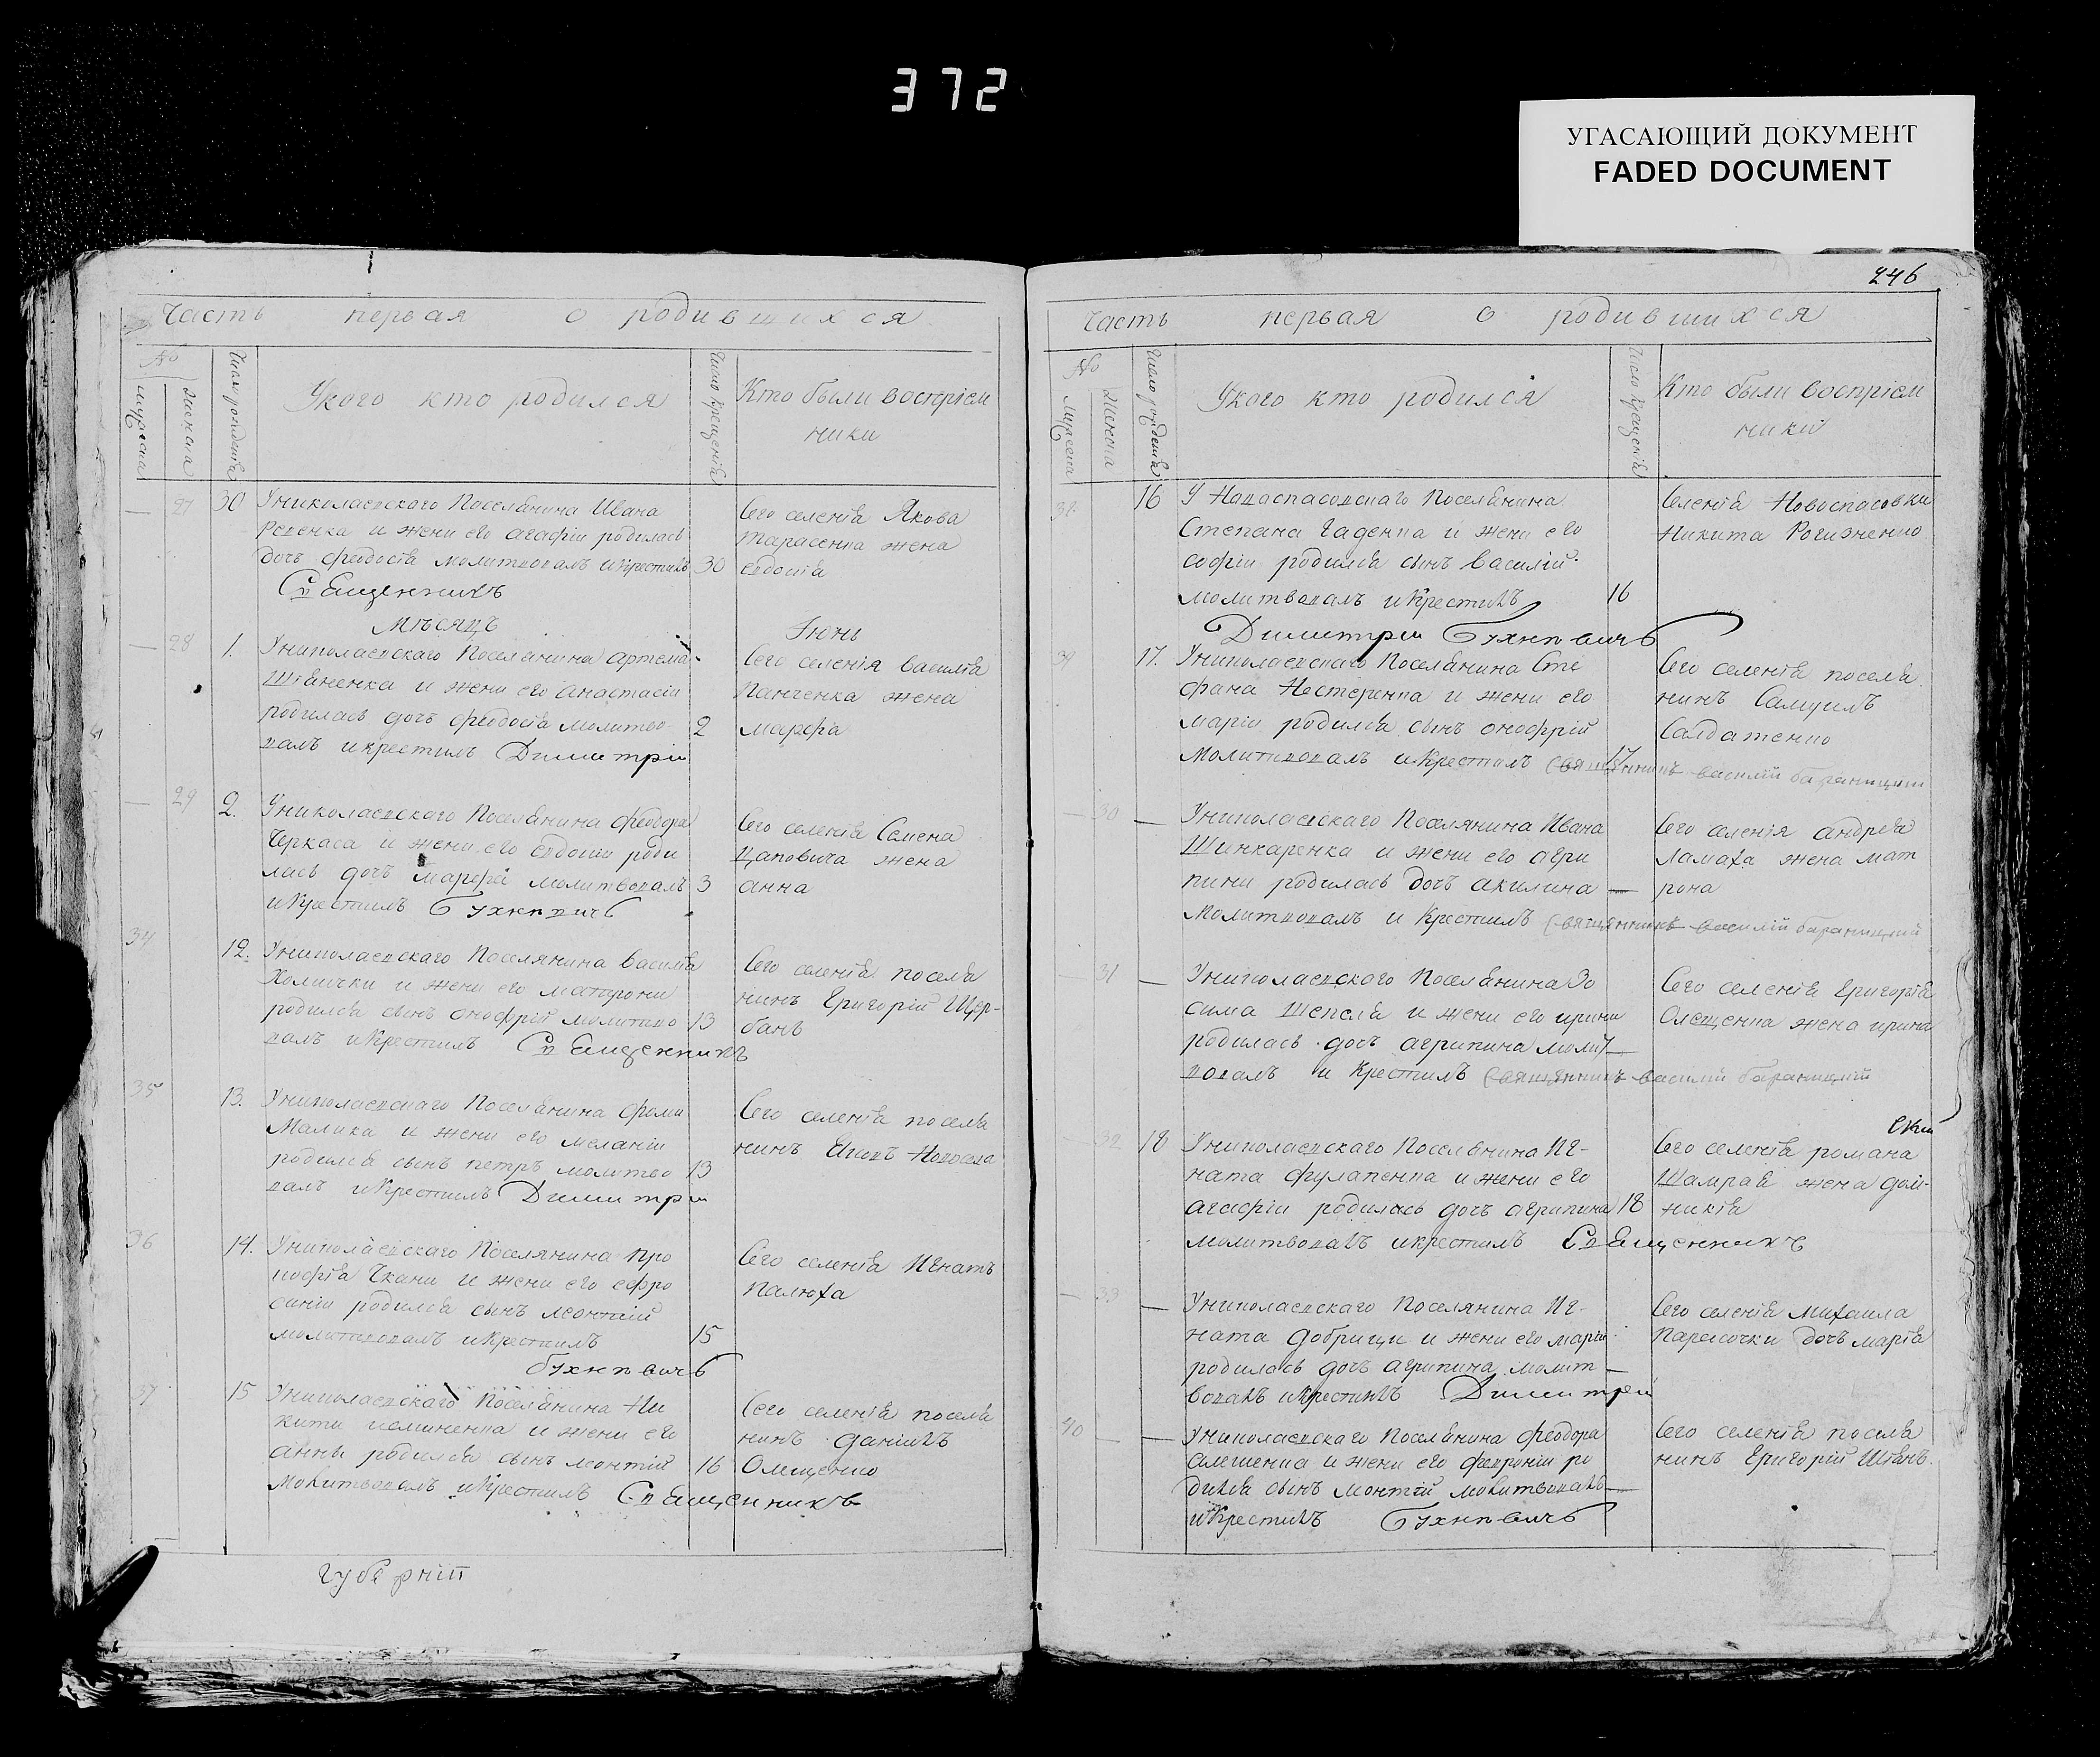 372
УГАСАЮЩИЙ ДОКУМЕНТ
FADED DOCUMENT
Часть первая о родившихся
№
мужеска
женска
Число рождения
У кого кто родился
Число крещенія
Кто были воспріем
ники
27 30 Униколаевскаго Поселянина Ивана
Реденка и жени его агафіи родилась
дочь феодосія молитвовалъ икрестилъ 30
Священникъ
Сего селенія Якова
Тарасенка жена
евдокія
Мѣсяцъ Іюнь
28 1. Униколаевскаго Поселянина артема
Шевненка и жени его анастасіи
родилась дочь феодосія молитво
валъ икрестилъ Димитрій 2
Сего селенія василія
Панченка жена
марфа
29 2. Униколаевскаго Поселянина феодора
Черкаса и жени его евдокіи роди
лась дочь марфа молитвовалъ 3
икрестилъ Бухновичъ
Сего селенія Семена
Цаповича жена
анна
34 12. Униколаевскаго Поселянина василія
Холички и жени его матрони
родился сынъ онофрій молитво 13
валъ икрестилъ Священникъ
Сего селенія поселя
нинъ Григорій Щер-
банъ
35 13. Униколаевскаго Поселянина фоми
Малика и жени его меланіи
родился сынъ петръ молитво 13
валъ икрестилъ Димитрій
Сего селенія поселя
нинъ Новосела
36 14. Униколаевскаго Поселянина Про
кофія Ткани и жени его ефро
синіи родился сынъ леонтій
молитвовалъ икрестилъ 15
Бухновичъ
Сего селенія Игнатъ
Палюха
37 15 Униколаевскаго Поселянина Ни
кити и жени его
анны родился сынъ леонтій 16
молитвовалъ икрестилъ Священникъ
Сего селенія поселя
нинъ даніилъ
Олещенко
губерніи
246
Часть первая о родившихся
№
мужеска
женска
Число рожденія
У кого кто родился
Число крещенія
Кто были воспріем
ники
38 16 У Новоспасовскаго Поселянина
Степана Гаденка и жени его
софіи родился сынъ василій
молитвовалъ икрестилъ 16
Димитрій Бухновичъ
Селенія Новоспасовки
Никита Рогизненко
39 17. Униколаевскаго Поселянина Сте
фана Нестеренка и жени его
маріи родился сынъ онофрій
молитвовалъ икрестилъ 17 священникъ василій бараницкій
Сего селенія поселя
нинъ Самуилъ
Салдатенко
30 — Униколаевскаго Поселянина Ивана
Шинкаренка и жени его агри
пини родилась дочь акилина —
молитвовалъ и крестилъ священникъ василій бараницкій
Сего селенія андрея
Ламаха жена мат
рона
31 — Униколаевскаго Поселянина Зо
сима Шепеля и жени его ирини
родилась дочь агрипина молит —
вовалъ и крестилъ священникъ василій бараницкій
Сего селенія Григорія
Олещенка жена ирина
32 18 Униколаевскаго Поселянина Иг-
ната фулапенка и жени его
агафіи родилась дочь агрипина 18
молитвовалъ икрестилъ Священникъ
Сего селенія романа
Шамрая жена дом-
никія
33 — Униколаевскаго Поселянина Иг-
ната добрици и жени его маріи
родилась дочь агрипина молит —
вовалъ икрестилъ Димитрій
Сего селенія михаила
дочь марія
40 — Униколаевскаго Поселянина феодора
и жени его февроніи ро
дился сынъ леонтій молитвовалъ —
икрестилъ Бухновичъ
Сего селенія поселя
нинъ Григорій